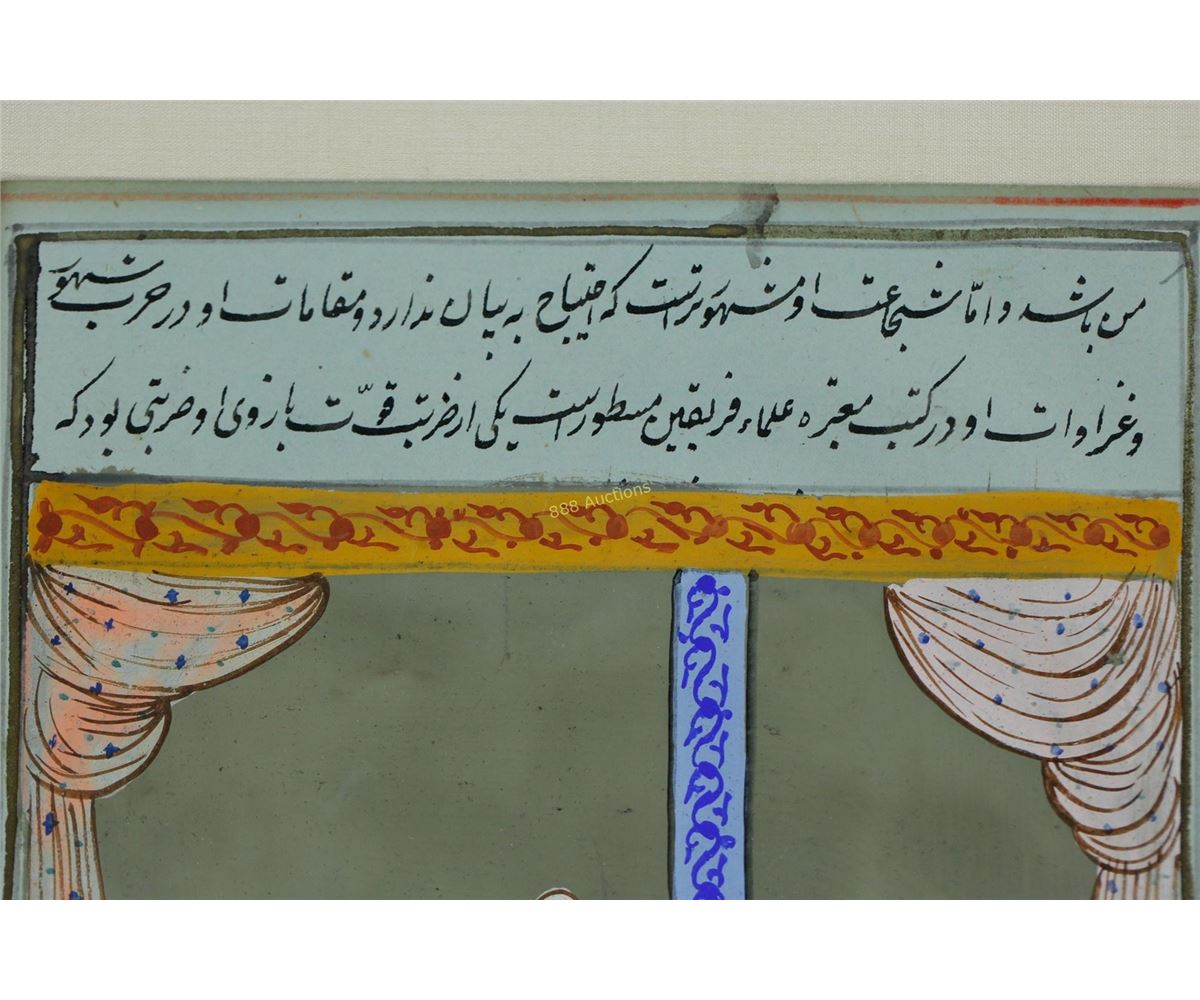 من باشد و امّا شجاعت او مشهورتر است که احتیاج به بیان ندارد و مقامات او در حرب مشهور
و غزاوات او در کتب معتبره علماء فریقین مسطور است یکی از ضربت قوّت بازوی او ضربتی بود که
888 Auctions